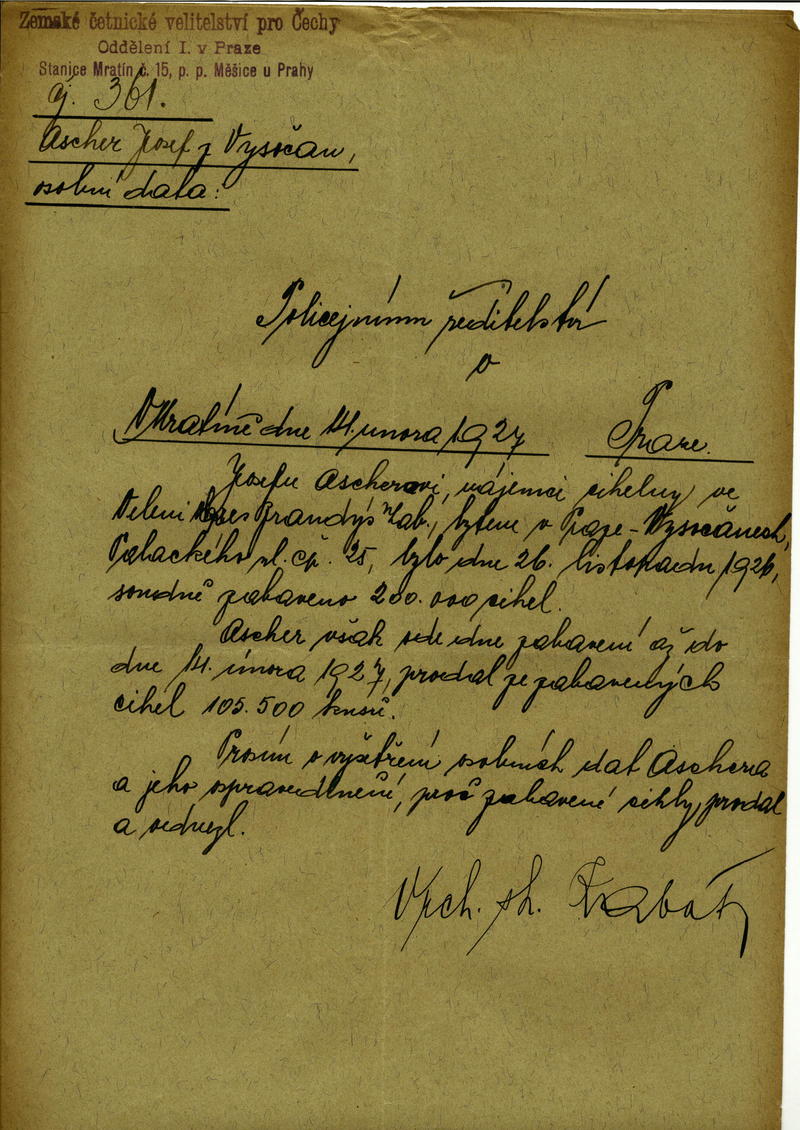 Zemské četnické velitelství pro Čechy
Oddělení I. v Praze
Stanice Mratín č. 15, p. p. Měšice u Prahy
čj. 361.
Ascher Josef z Vysočan,
osobní data:
Policejnímu ředitelství
v
V Mratíně dne 14. února 1927 Praze.
Josefu Ascherovi, nájemci cihelny ve
Veleni okres Brandýs n/Lab., bytem v Praze-Vysočanech,
Palackého ul. čp. 25, bylo dne 26. listopadu 1926,
soudně zabaveno 200.000 cihel.
Ascher však ode dne zabavení až do
dne 14. února 1927, prodal ze zabavených
cihel 105.500 kusů.
Prosím o vyšetření osobních dat Aschera
a jeho ospravedlnění, proč zabavené cihly prodal
a odvezl.
Vrch. st.